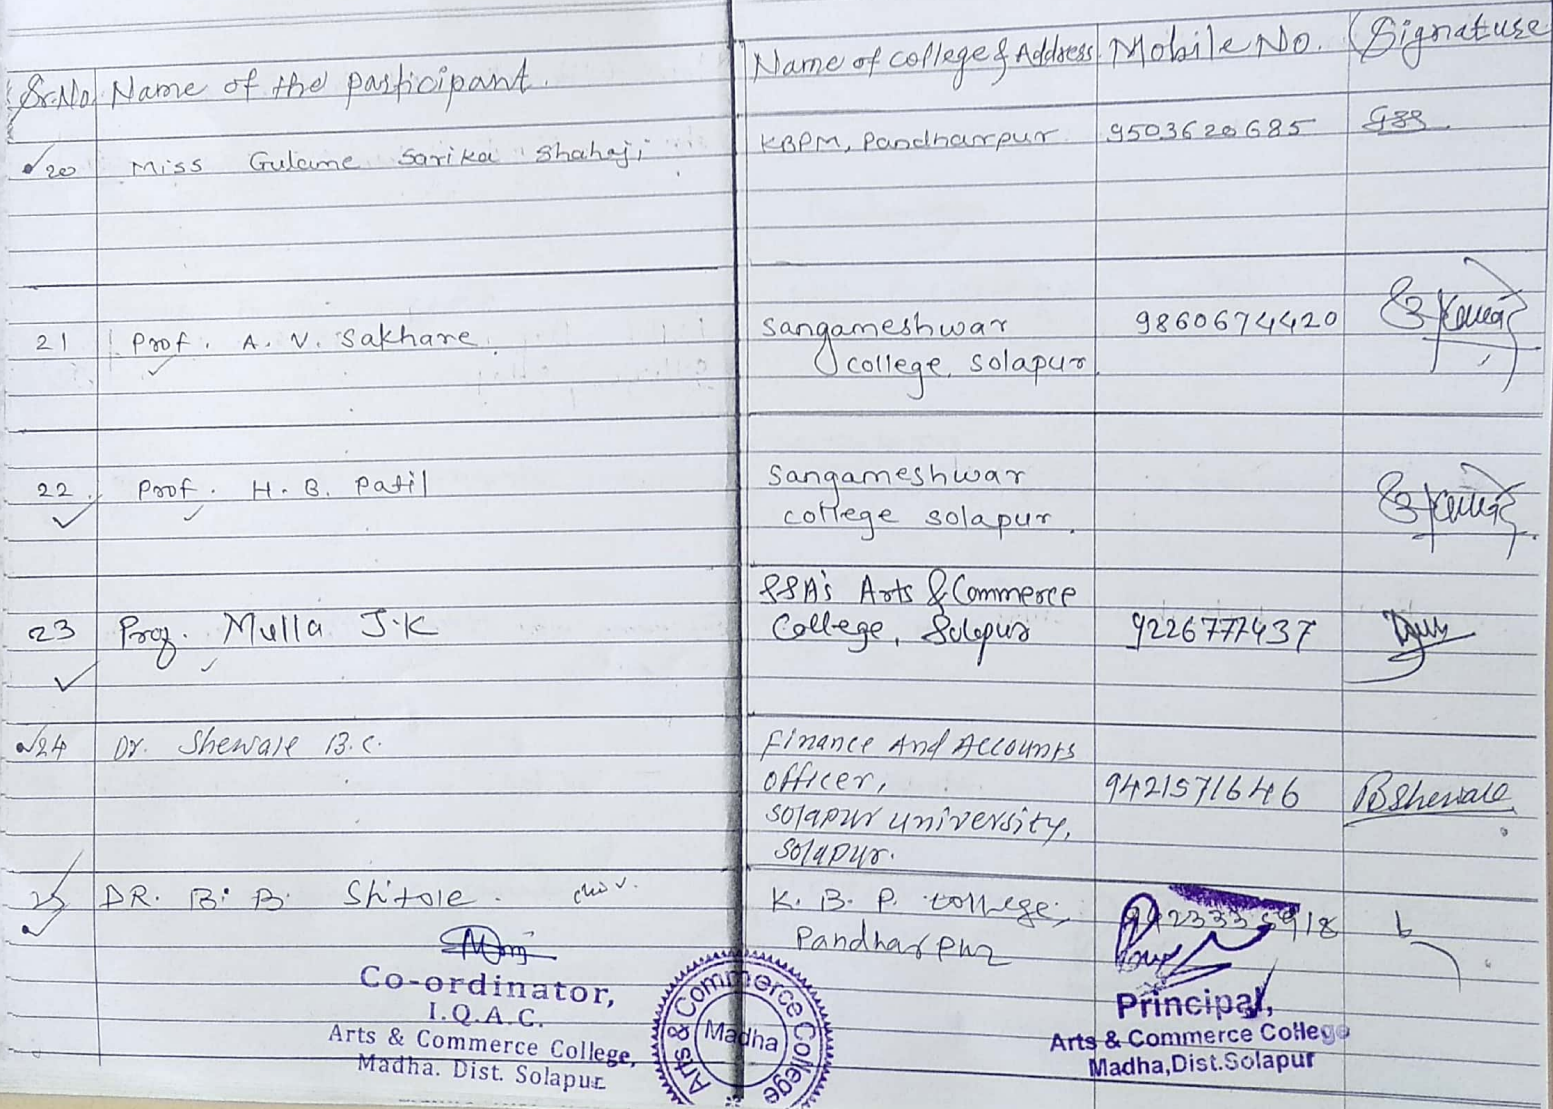 Sr.No Name of the participant Name of college & Address Mobile No. Signature
20 Miss Gulame Sarika Shahaji KBPM, Pandharpur 9503620685
21 Prof. A. V. Sakhare Sangameshwar college, Solapur 9860674420
22 Prof. H. B. Patil Sangameshwar college Solapur.
23 Prof. Mulla J.K SSA's Arts & Commerce College, Solapur 9226777437
24 Dr. Shewale B.C. Finance And Accounts officer, Solapur University, Solapur. 9421571646 BShewale
25 DR. B. B. Shitole. K. B. P. College, Pandharpur
Co-ordinator,
I.Q.A.C.
Arts & Commerce College,
Madha. Dist. Solapur
Arts & Commerce College
Madha
Principal,
Arts & Commerce College
Madha,Dist.Solapur